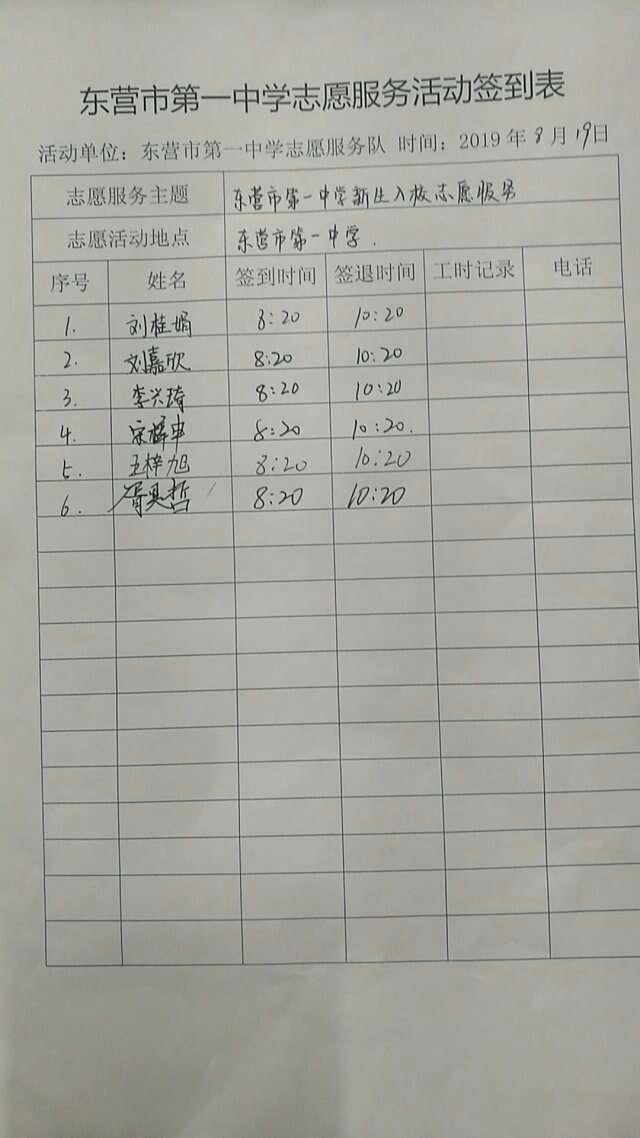 东营市第一中学志愿服务活动签到表
活动单位：东营市第一中学志愿服务队 时间：2019年8月19日
志愿服务主题 东营市第一中学新生入校志愿服务
志愿活动地点 东营市第一中学.
序号 姓名 签到时间 签退时间 工时记录 电话
1. 刘桂娟 8:20 10:20
2. 刘嘉欣 8:20 10:20
3. 李兴琦 8:20 10:20
4. 宋梓申 8:20 10:20.
5. 王梓旭 8:20 10:20
6. 胥昊哲 8:20 10:20